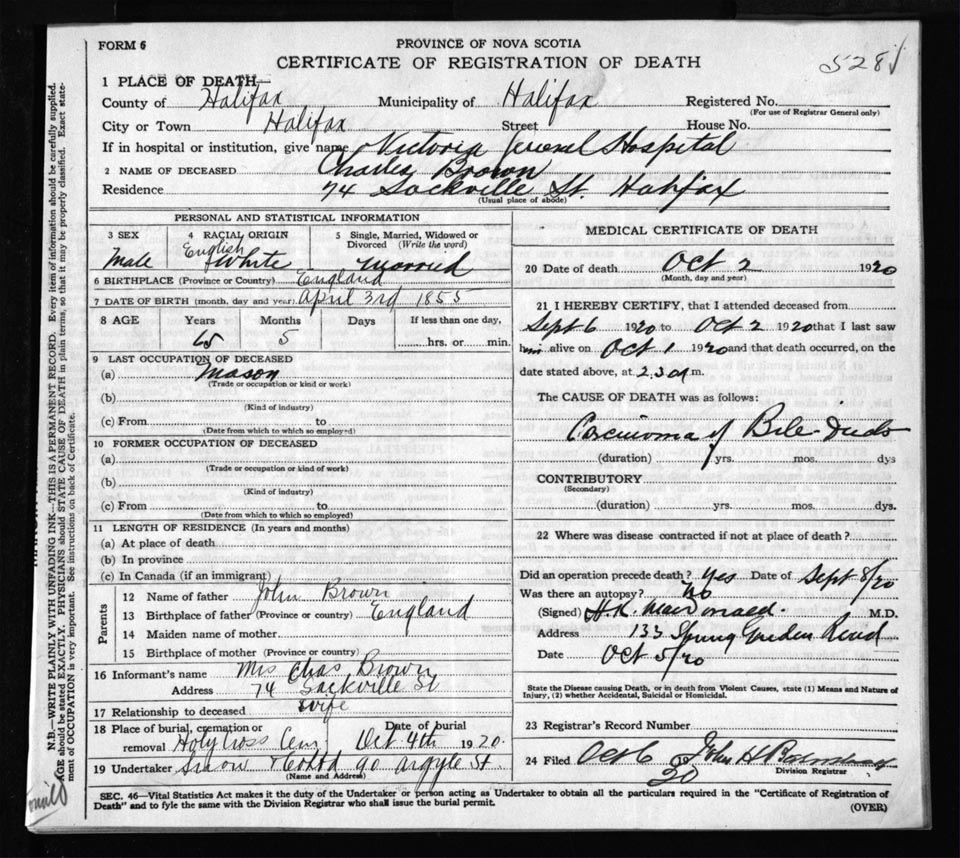 FORM 6
PROVINCE OF NOVA SCOTIA
CERTIFICATE OF REGISTRATION OF DEATH
5281
1 PLACE OF DEATH—
County of Halifax Municipality of Halifax Registered No.
(For use of Registrar General only)
City or Town Halifax Street House No.
If in hospital or institution, give name Victoria General Hospital
2 NAME OF DECEASED Charles Brown
Residence 74 Sackville St. Halifax
(Usual place of abode)
PERSONAL AND STATISTICAL INFORMATION
3 SEX 4 RACIAL ORIGIN 5 Single, Married, Widowed or Divorced (Write the word)
Male English White Married
6 BIRTHPLACE (Province or Country) England
7 DATE OF BIRTH (month, day and year) April 3rd 1855
8 AGE Years Months Days If less than one day,
65 5 hrs. or min.
9 LAST OCCUPATION OF DECEASED
(a) Mason
(Trade or occupation or kind or work)
(b)
(Kind of industry)
(c) From to
(Date from which to which so employed)
10 FORMER OCCUPATION OF DECEASED
(a)
(Trade or occupation or kind of work)
(b)
(Kind of industry)
(c) From to
(Date from which to which so employed)
11 LENGTH OF RESIDENCE (In years and months)
(a) At place of death
(b) In province
(c) In Canada (if an immigrant)
Parents
12 Name of father John Brown
13 Birthplace of father (Province or country) England
14 Maiden name of mother
15 Birthplace of mother (Province or country)
16 Informant's name Mrs Chas Brown
Address 74 Sackville St
17 Relationship to deceased wife
18 Place of burial, cremation or removal Holy Cross Cem Date of burial Oct 4th 1920
19 Undertaker Snow & Co Ltd 90 Argyle St.
(Name and Address)
MEDICAL CERTIFICATE OF DEATH
20 Date of death Oct 2 1920
(Month, day and year)
21 I HEREBY CERTIFY, that I attended deceased from
Sept 6 1920 to Oct 2 1920 that I last saw
him alive on Oct 1 1920 and that death occurred, on the
date stated above, at 2.30 a m.
The CAUSE OF DEATH was as follows:
Carcinoma of Bile Ducts
(duration) yrs. mos. dys
CONTRIBUTORY
(Secondary)
(duration) yrs. mos. dys.
22 Where was disease contracted if not at place of death?
Did an operation precede death? Yes Date of Sept 8/20
Was there an autopsy? No
(Signed) H.K. M.D.
Address 133 Spring Garden Road
Date Oct 5/20
State the Disease causing Death, or in death from Violent Causes, state (1) Means and Nature of
Injury, (2) whether Accidental, Suicidal or Homicidal.
23 Registrar's Record Number
24 Filed Oct 6 1920 John H
Division Registrar
SEC. 46—Vital Statistics Act makes it the duty of the Undertaker or person acting as Undertaker to obtain all the particulars required in the "Certificate of Registration of
Death" and to fyle the same with the Division Registrar who shall issue the burial permit.
(OVER)
N.B.—WRITE PLAINLY WITH UNFADING INK—THIS IS A PERMANENT RECORD. Every item of information should be carefully supplied.
AGE should be stated EXACTLY. PHYSICIANS should STATE CAUSE OF DEATH in plain terms, so that it may be properly classified. Exact state-
ment of OCCUPATION is very important. See instructions on back of Certificate.